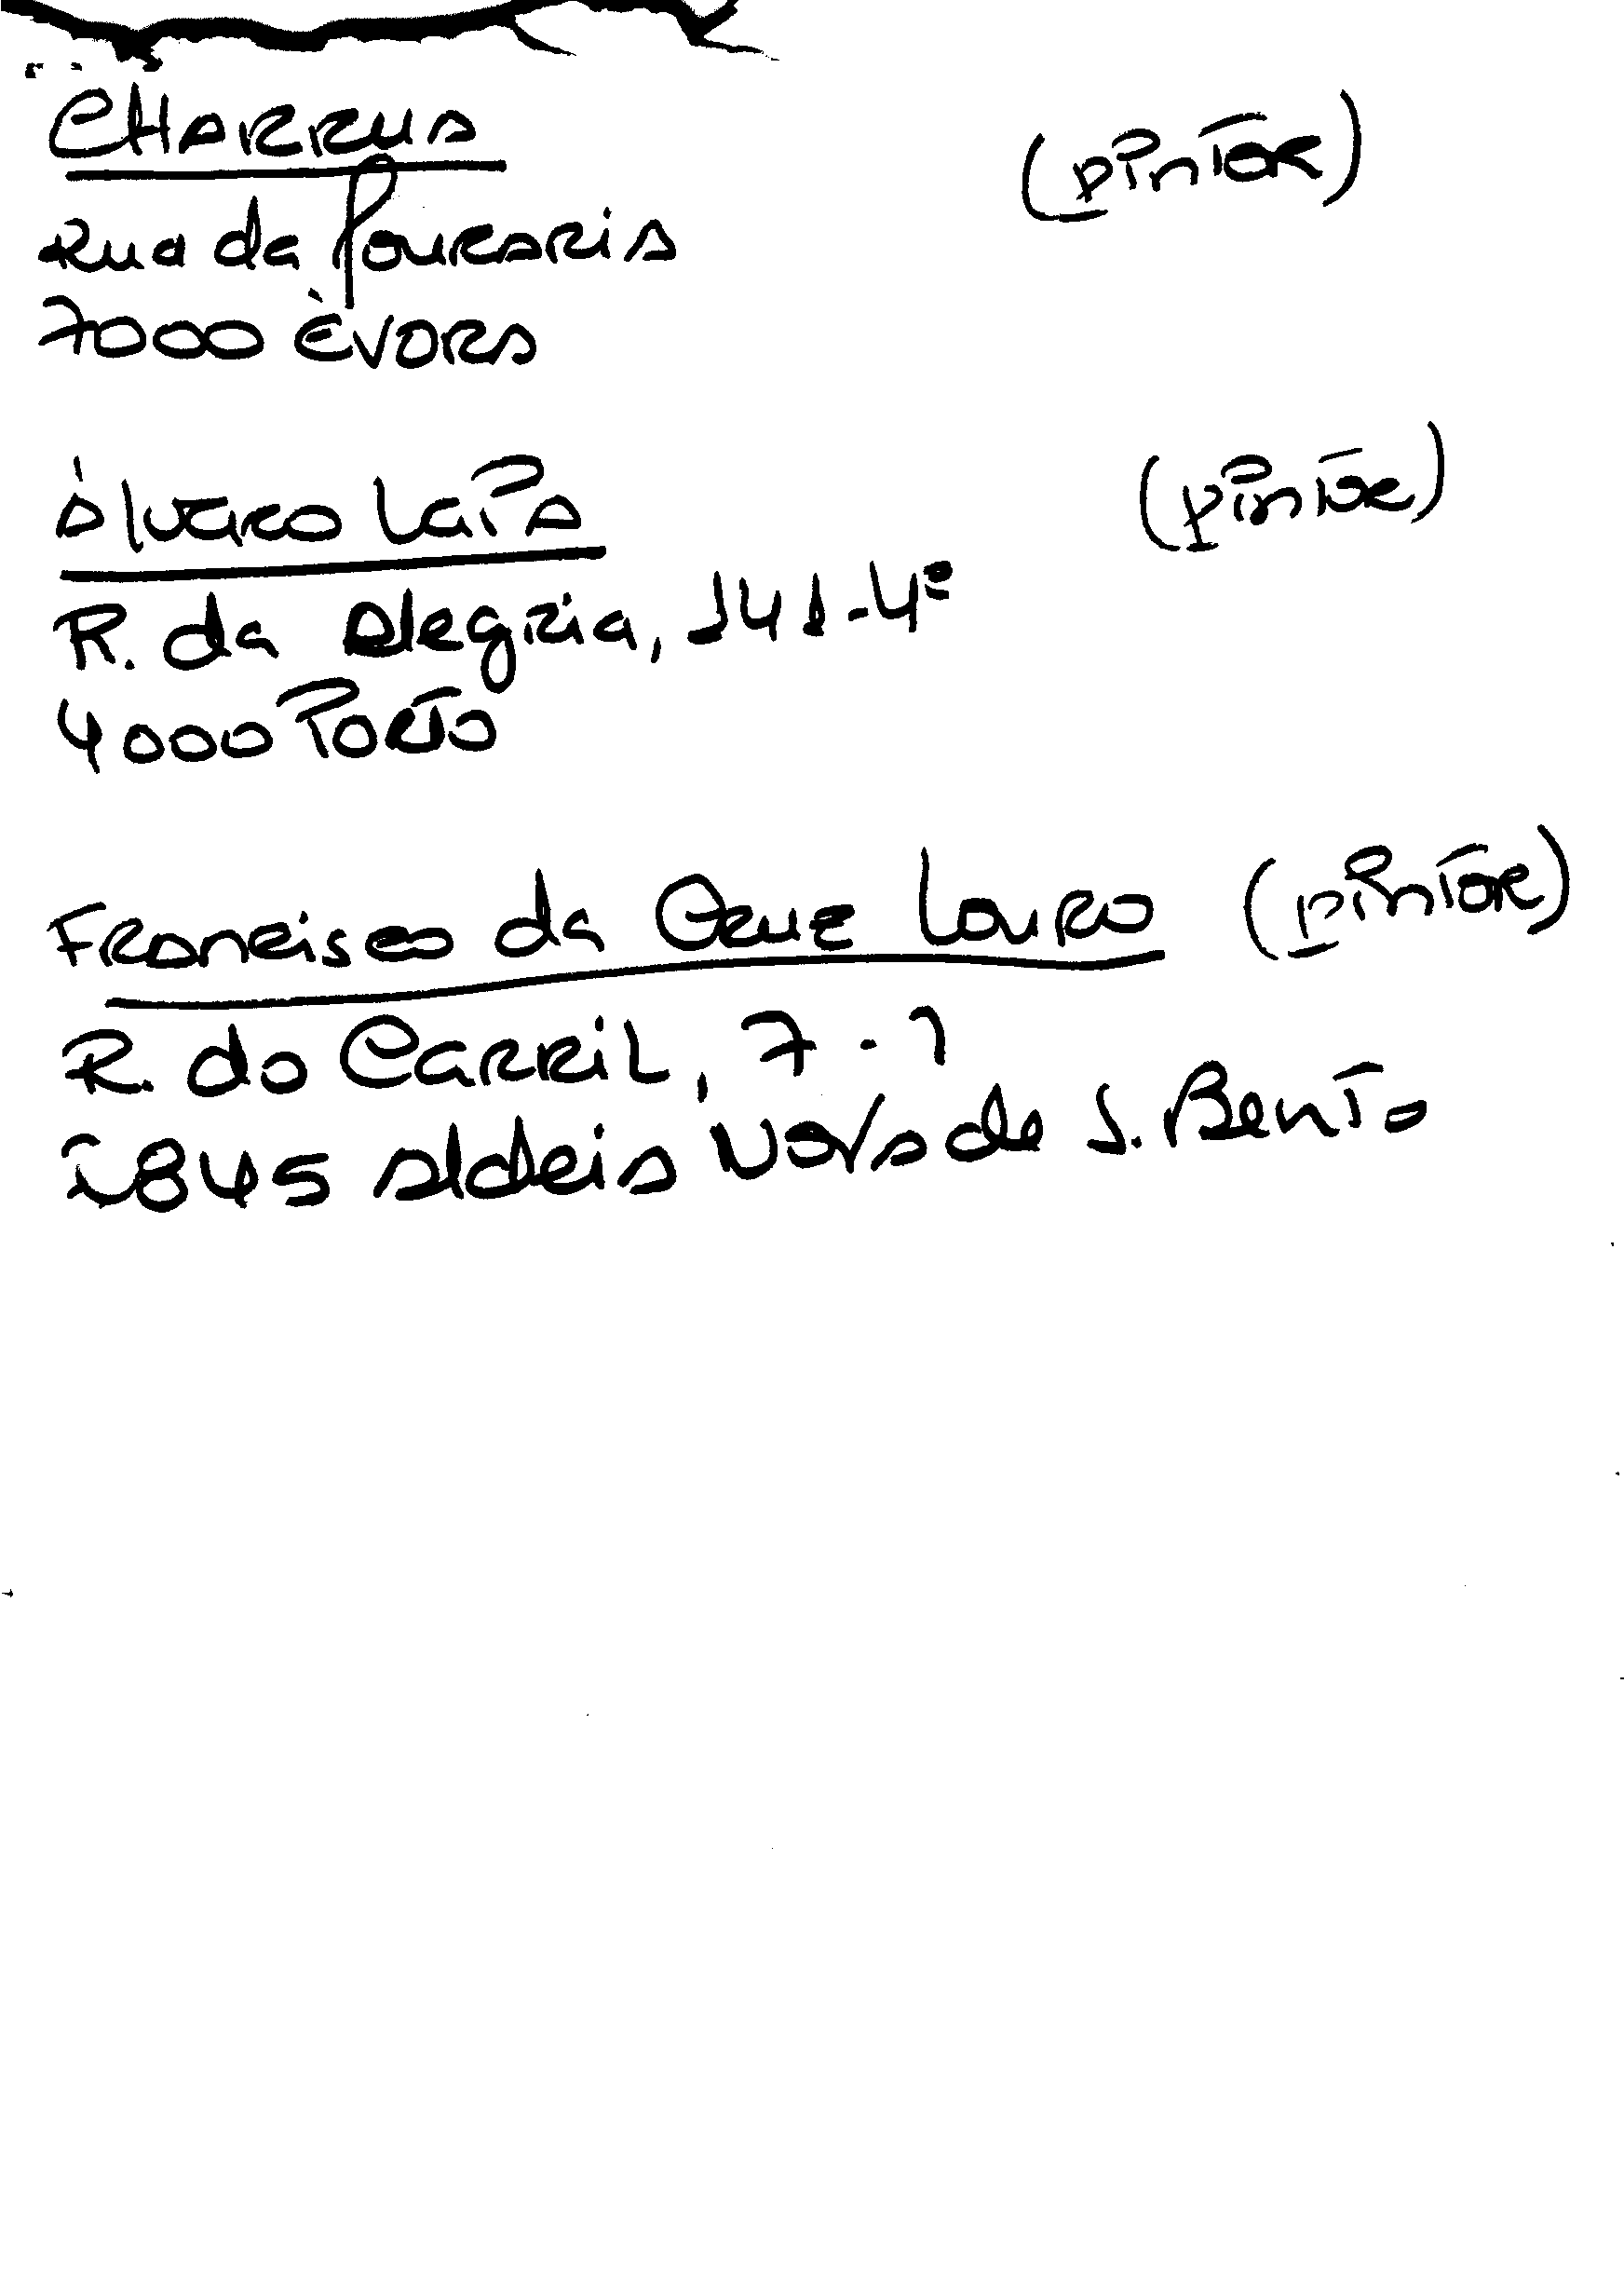 CHARRUA (pintor)
Rua da Mouraria
7000 Évora
Álvaro Lapa (pintor)
R. da Alegria, 141-4º
4000 Porto
Francisco da Cruz Louro (pintor)
R. do Carril, 7-1
7845 Aldeia Nova de S. Bento